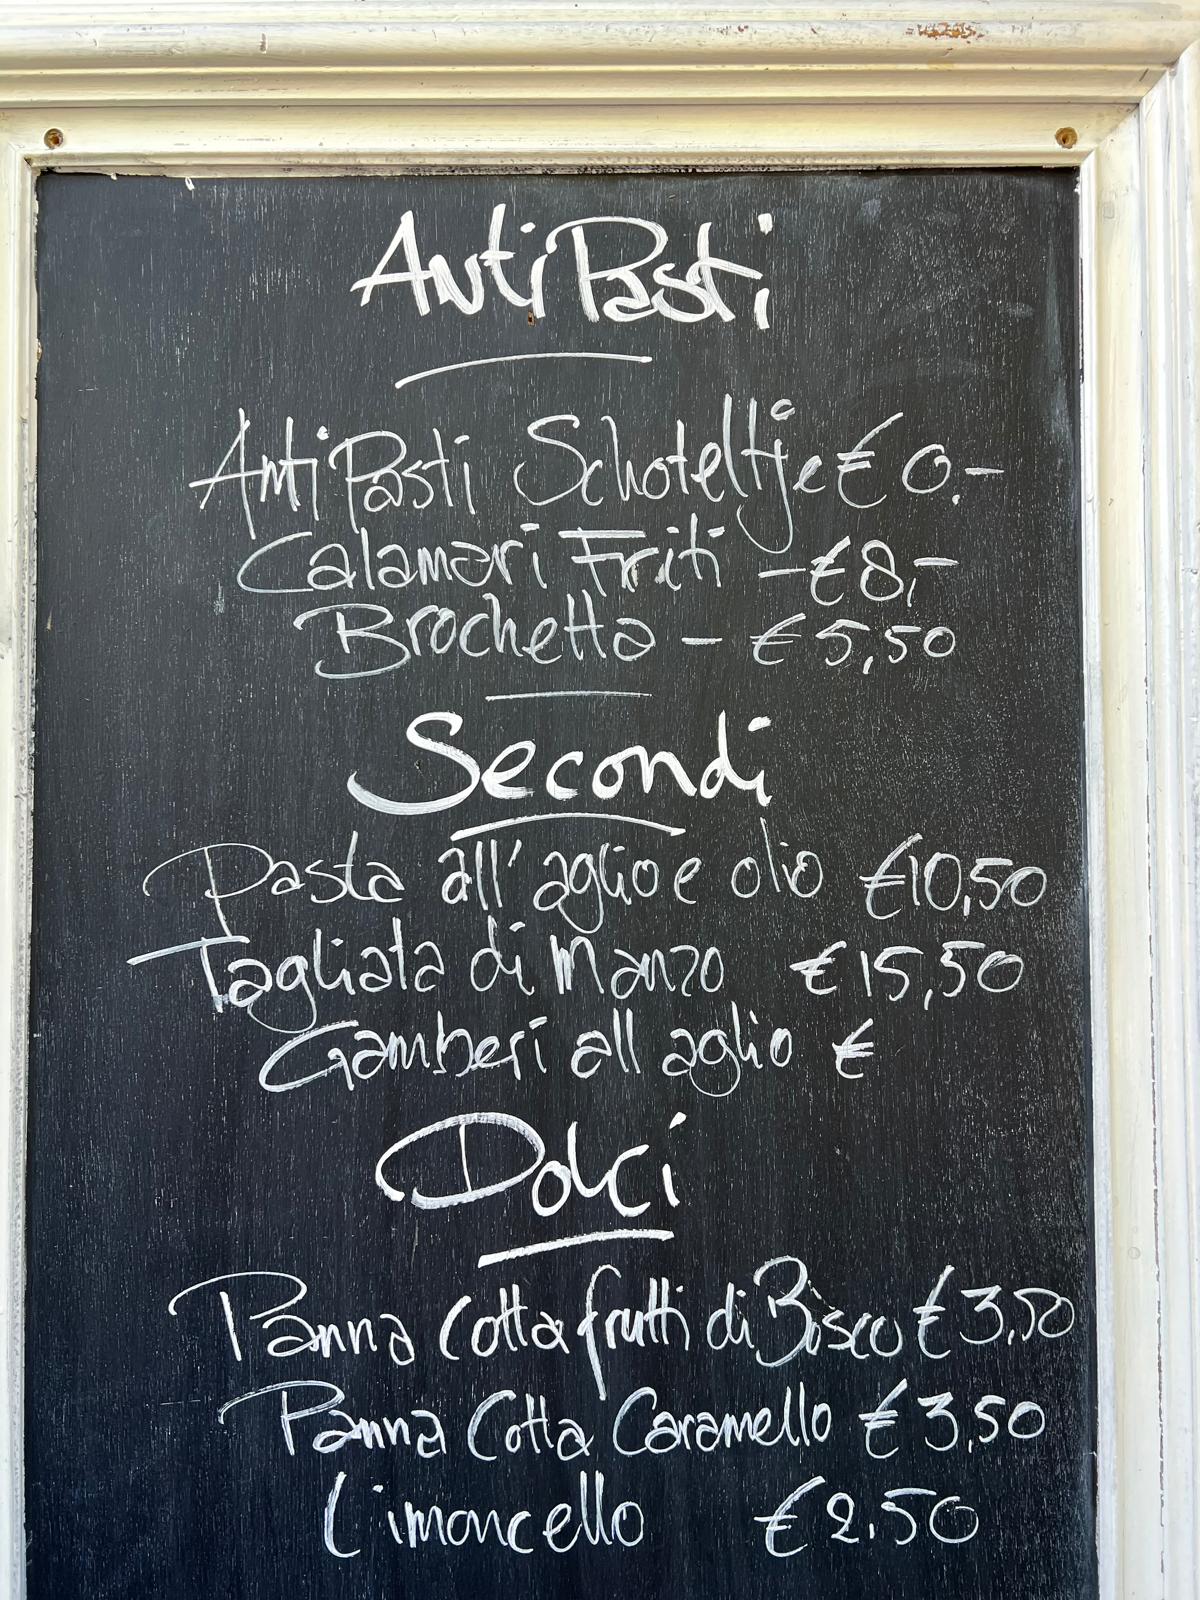 AntiPasti
AntiPasti Schoteltje € 0.-
Calamari Friti - € 8,-
Brochetta - € 5,50
Secondi
Pasta all'aglio e olio € 10,50
Tagliata di Manzo € 15,50
Gamberi all aglio €
Dolci
Panna Cotta frutti di Bosco € 3,50
Panna Cotta Caramello € 3,50
Limoncello € 2.50